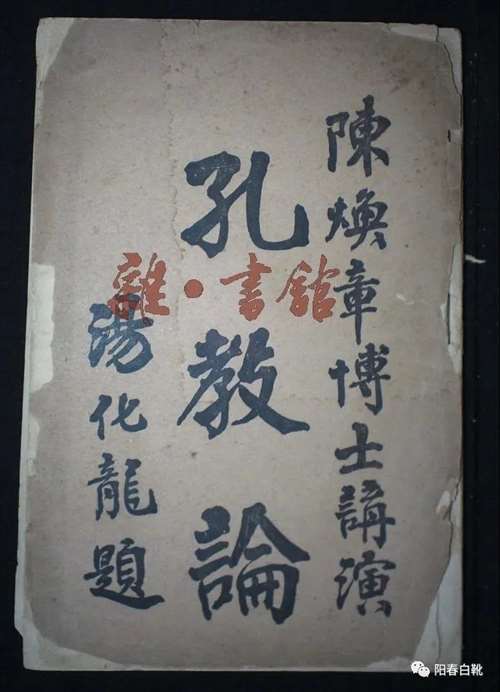 陳煥章博士講演
孔教論
湯化龍題
雜·書館
阳春白靴